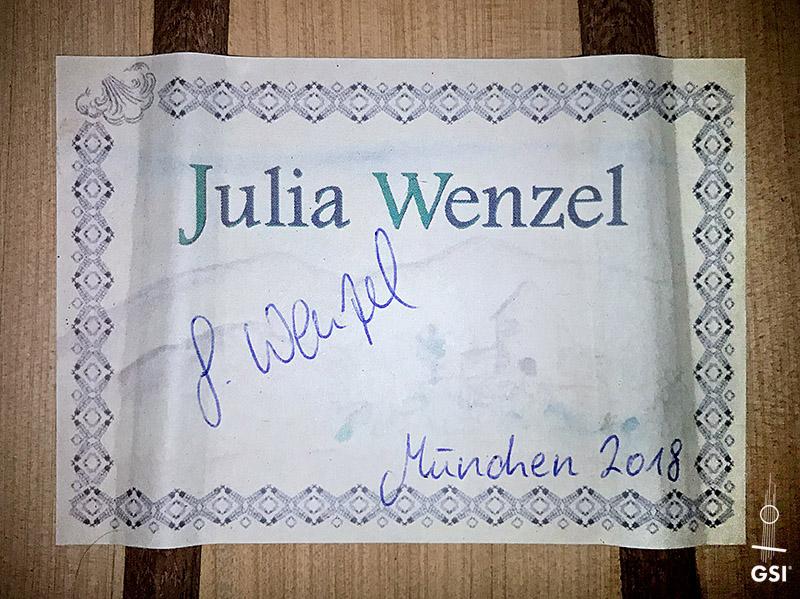 Julia Wenzel
J. Wenzel
München 2018
GSI®